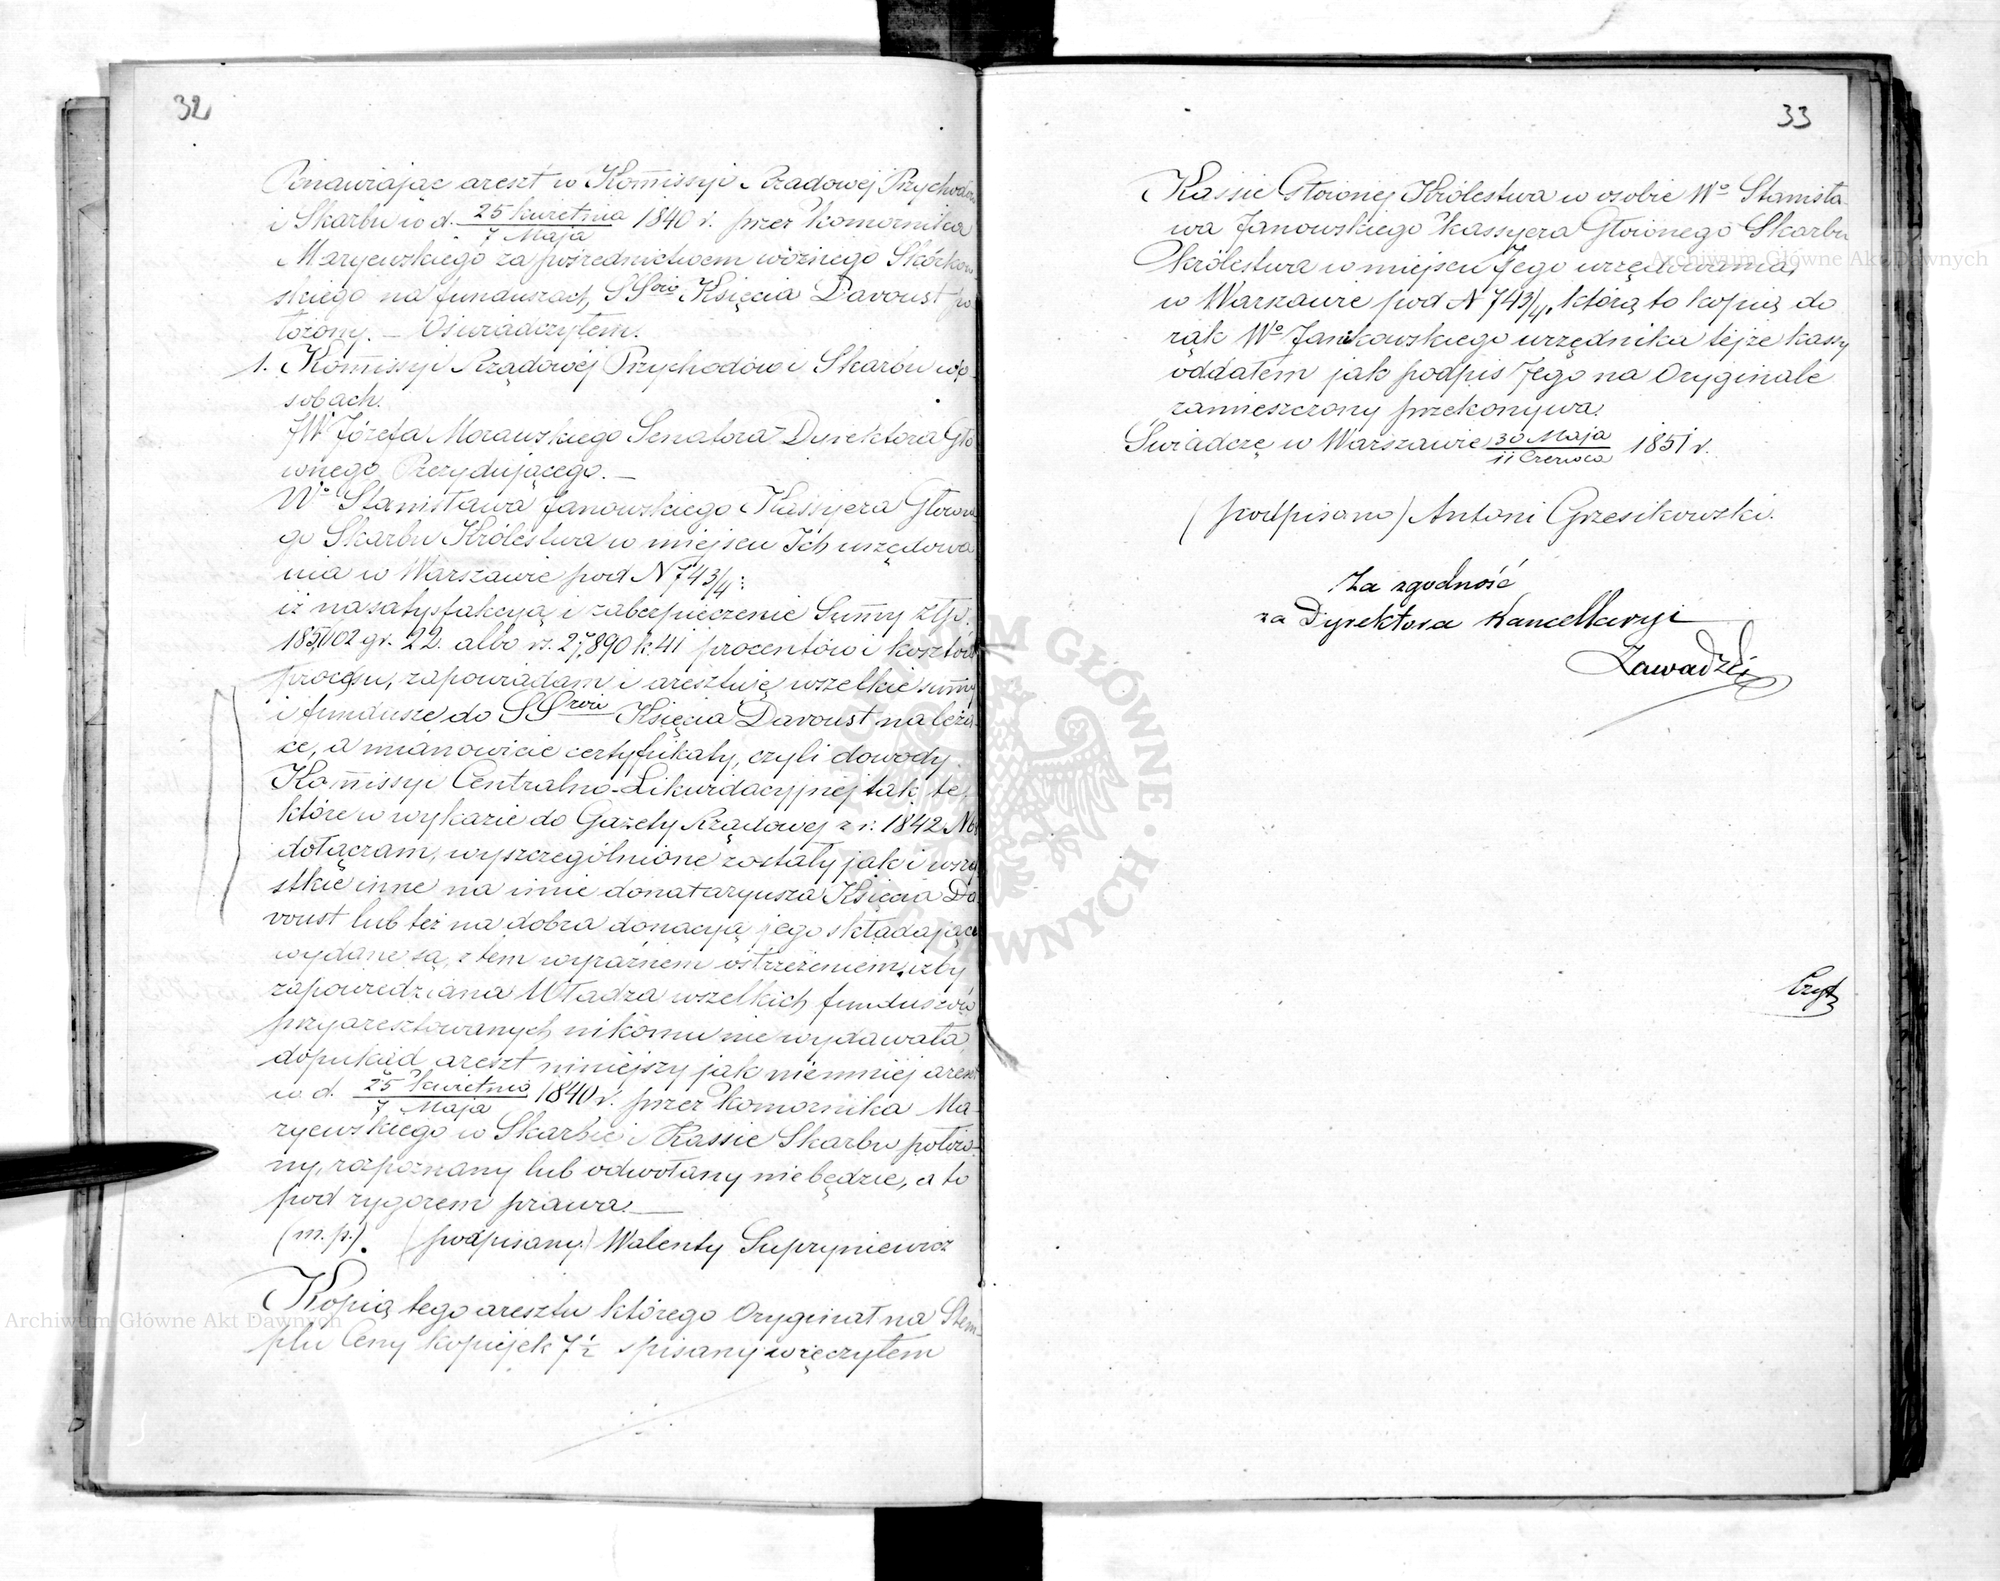 32
Ponawiając areszt w Kommissyi Rządowej Przychodów
i Skarbu w d. 25 kwietnia / 7 Maja 1840 r. przez komornika
Maryewskiego za pośrednictwem woźnego Skórkow
skiego na funduszach SSrów Księcia Davoust po
łożony. — Oświadczyłem.
1. Kommissyi Rządowej Przychodów i Skarbu w o-
sobach.
JW Józefa Morawskiego Senatora Dyrektora Głó
wnego Prezydującego. —
Wo Stanisława Janowskiego Kassyera Główne
go Skarbu Królestwa w miejscu Ich urzędowa
nia w Warszawie pod N 743/4:
iż na satysfakcyą i zabezpieczenie Summy złp.
185,102 gr. 22. albo rs. 27,890 k. 41 procentów i kosztów
procesu, zapowiadam i aresztuję wszelkie summy
i fundusze do SSrów Księcia Davoust należą-
ce, a mianowicie certyfikaty, czyli dowody
Kommissyi Centralno-Likwidacyjnej tak te,
które w wykazie do Gazety Rządowej z r. 1842 N
dołączam, wyszczególnione zostały jak i wszy
stkie inne na imie donataryusza Księcia Da
voust lub też na dobra donacyą jego składające
wydane są, z tem wyraźnem ostrzeżeniem, izby
zapowiedziana Władza wszelkich funduszów
przyaresztowanych nikomu nie wydawała,
dopukąd areszt niniejszy jak niemniej areszt
w d. 25 kwietnia / 7 Maja 1840 r. przez komornika Ma-
ryewskiego w Skarbie i Kassie Skarbu położo-
ny, rozpoznany lub odwołany nie będzie, a to
pod rygorem prawa. —
(m.p.). (podpisany) Walenty Supryniewicz
Kopią tego aresztu którego Oryginał na Stem-
plu Ceny kopiejek 7 1/2 spisany wręczyłem
33
Kassie Głównej Królestwa w osobie Wo Stanisła-
wa Janowskiego kassyera Głównego Skarbu
Królestwa w miejscu Jego urzędowania,
w Warszawie pod N 743/4, którą to kopią do
rąk Wo Jankowskiego urzędnika tejże kassy
oddałem jak podpis Jego na Oryginale
zamieszczony przekonywa.
Świadczę w Warszawie 30 Maja / 11 Czerwca 1851 r.
(podpisano) Antoni Grzesikowski.
Za zgodność
za Dyrektora Kancellaryi
Zawadzki
Czyt
Archiwum Główne Akt Dawnych
Archiwum Główne Akt Dawnych